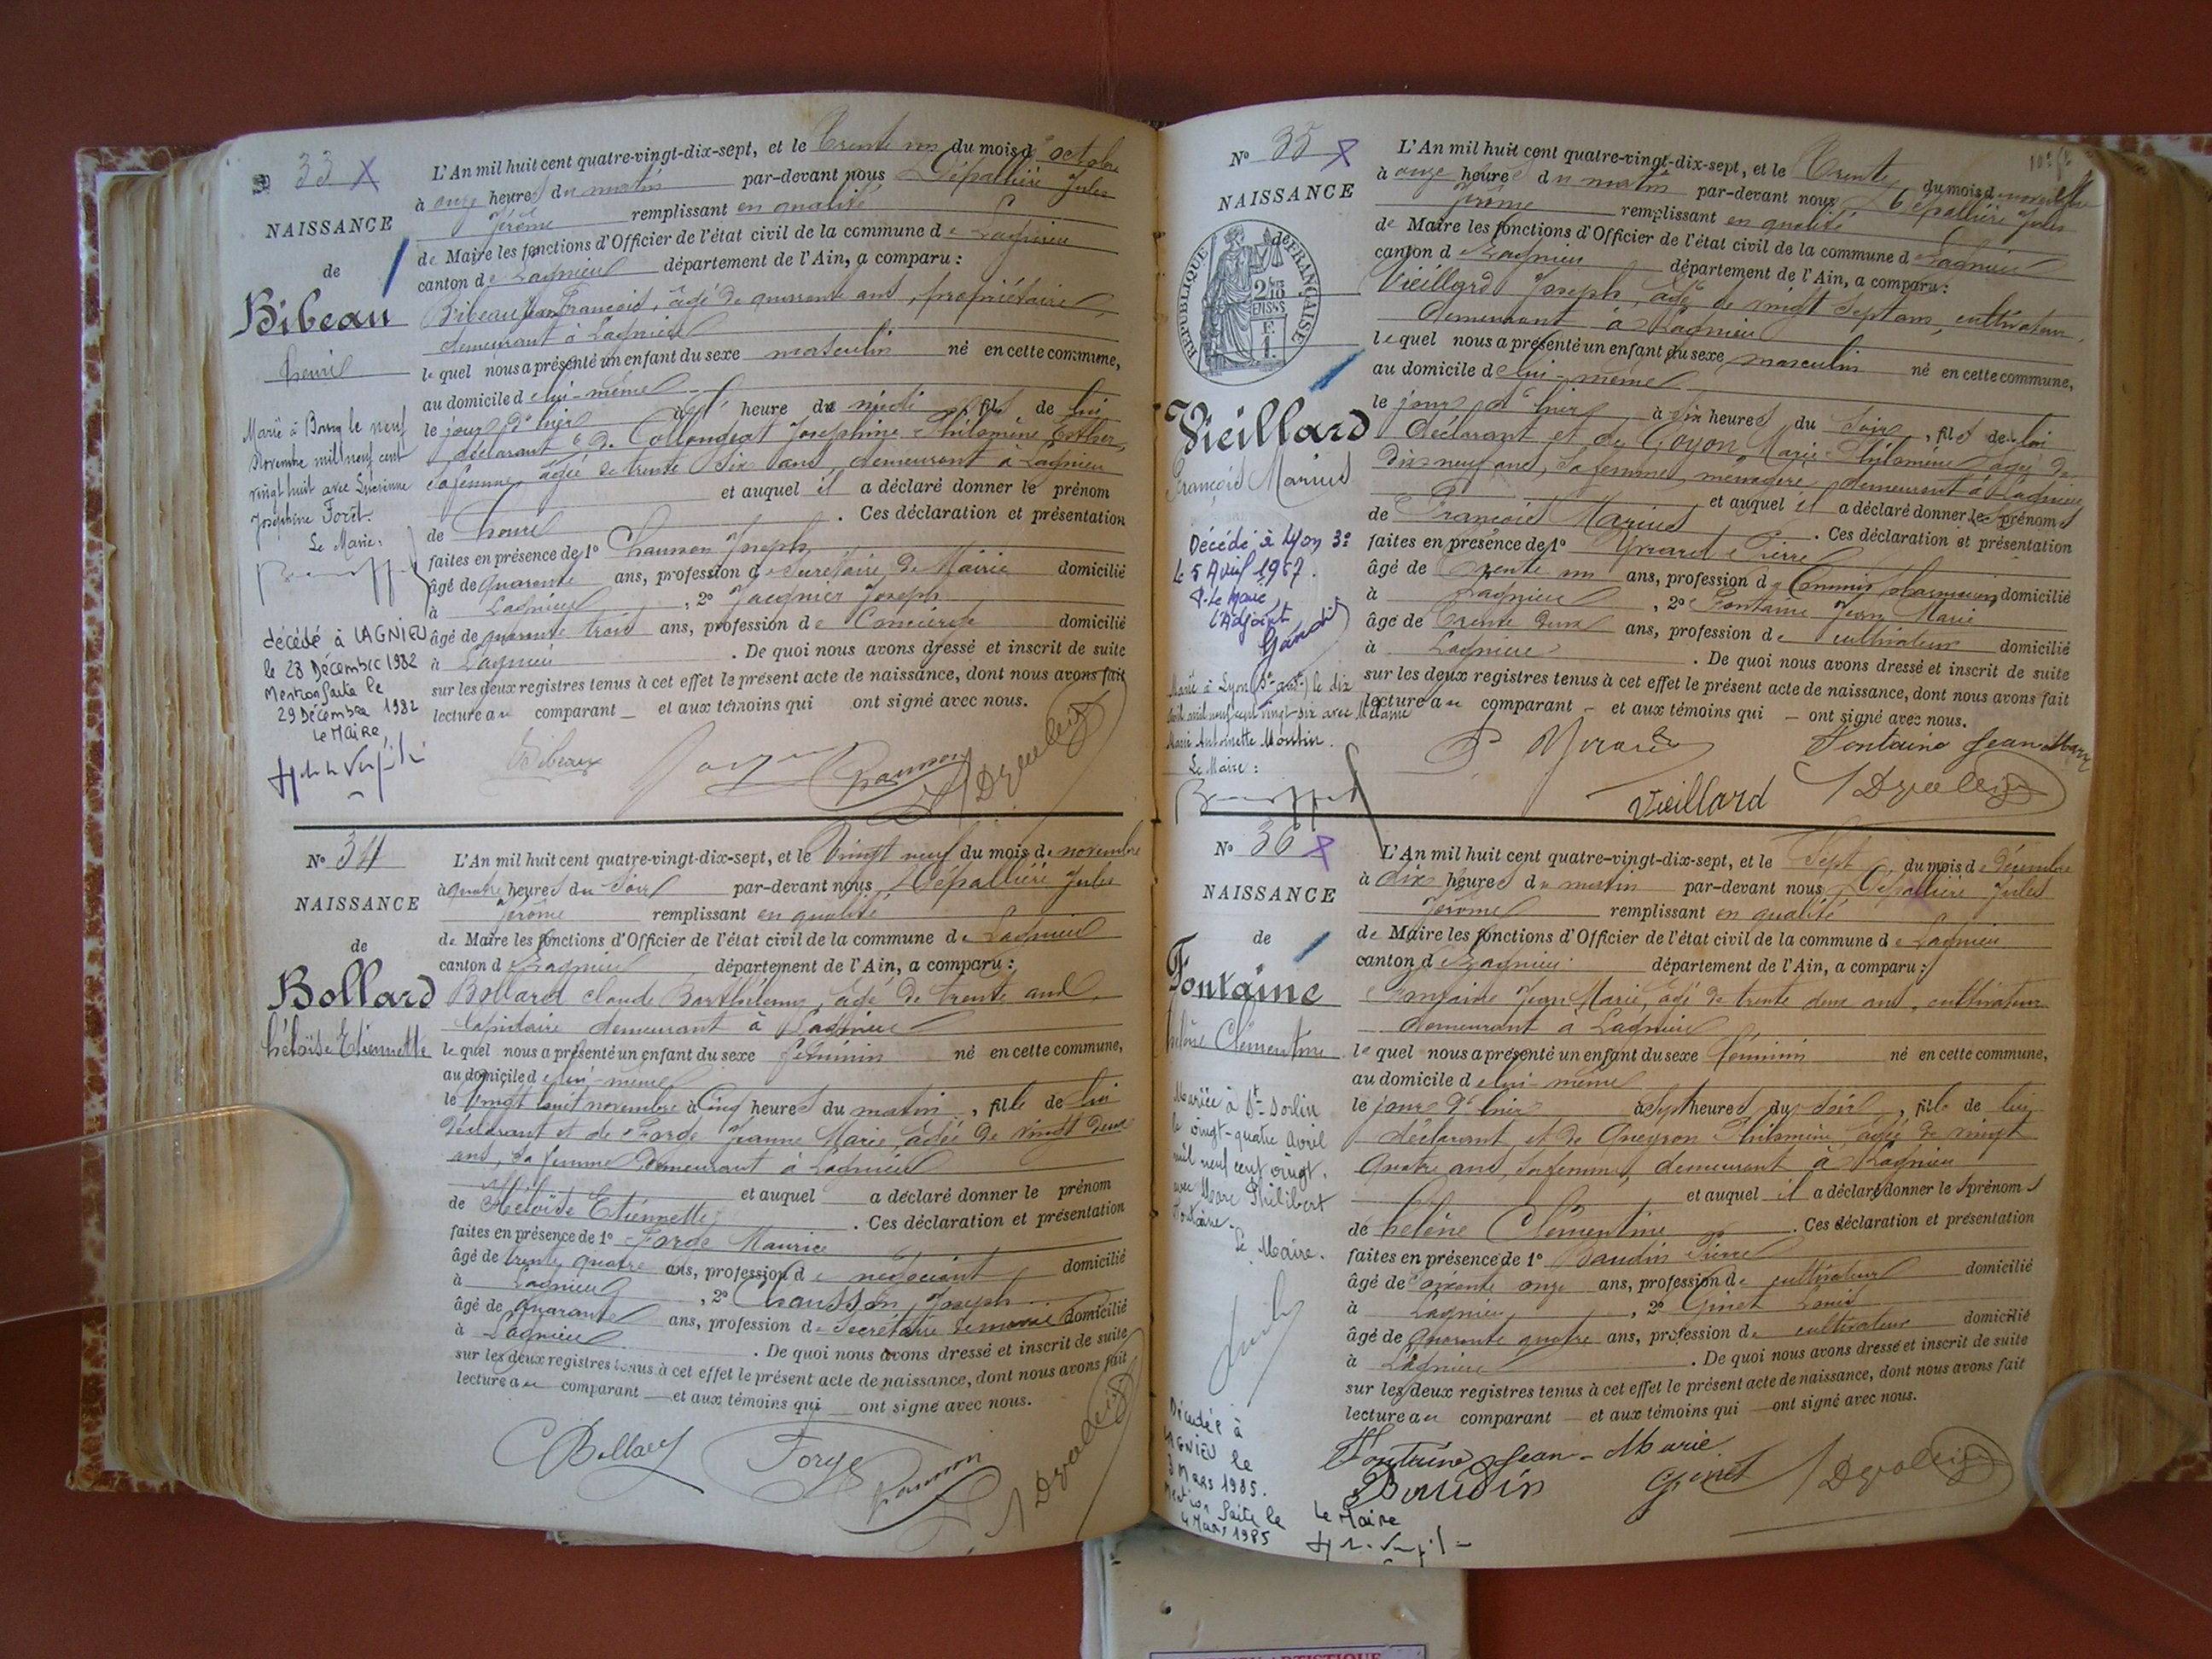 33 X
NAISSANCE
de
Bibeau
henri
Marié à Bourg le neuf
Novembre mil neuf cent
vingt huit avec
Joséphine Forêt.
Le Maire:
décédé à LAGNIEU
le 28 Décembre 1982
Mention faite le
29 Décembre 1982
Le Maire,
L'An mil huit cent quatre-vingt-dix-sept, et le Trente un du mois d'octobre
à onze heures du matin par-devant nous Dépallière Jules
Jérôme remplissant en qualité
de Maire les fonctions d'Officier de l'état civil de la commune de Lagnieu
canton de Lagnieu département de l'Ain, a comparu :
Bibeau Jean François, âgé de quarante ans, propriétaire,
demeurant à Lagnieu
lequel nous a présenté un enfant du sexe masculin né en cette commune,
au domicile de lui-même
le jour d'hier heure du midi fils de lui
déclarant & de Collandeat Joséphine Philomène Esther,
sa femme âgée de trente six ans, demeurant à Lagnieu
et auquel il a déclaré donner le prénom
de henri . Ces déclaration et présentation
faites en présence de 1° Chausson Joseph
âgé de quarante ans, profession de Secrétaire de Mairie domicilié
à Lagnieu , 2° Jacquier Joseph
âgé de quarante trois ans, profession de Concierge domicilié
à Lagnieu . De quoi nous avons dressé et inscrit de suite
sur les deux registres tenus à cet effet le présent acte de naissance, dont nous avons fait
lecture au comparant et aux témoins qui ont signé avec nous.
Bibeau Chausson
N° 34
NAISSANCE
de
Bollard
héloïse Etiennette
L'An mil huit cent quatre-vingt-dix-sept, et le Vingt neuf du mois de novembre
à quatre heures du Soir par-devant nous Dépallière Jules
Jérôme remplissant en qualité
de Maire les fonctions d'Officier de l'état civil de la commune de Lagnieu
canton de Lagnieu département de l'Ain, a comparu :
Bollard Claude Barthélemy, âgé de trente ans,
lapidaire demeurant à Lagnieu
lequel nous a présenté un enfant du sexe féminin né en cette commune,
au domicile de lui-même
le Vingt huit novembre à Cinq heures du matin, fille de lui
déclarant et de Forge Jeanne Marie, âgée de vingt deux
ans, sa femme demeurant à Lagnieu
et auquel a déclaré donner le prénom
de Héloïse Etiennette . Ces déclaration et présentation
faites en présence de 1° Forge Maurice
âgé de trente quatre ans, profession de négociant domicilié
à Lagnieu , 2° Chausson Joseph
âgé de quarante ans, profession de Secrétaire de mairie domicilié
à Lagnieu . De quoi nous avons dressé et inscrit de suite
sur les deux registres tenus à cet effet le présent acte de naissance, dont nous avons fait
lecture au comparant et aux témoins qui ont signé avec nous.
CBollard Forge Chausson
N° 35 X
NAISSANCE
RÉPUBLIQUE FRANÇAISE
Vieillard
François Marius
Décédé à Lyon 3e
le 5 Avril 1967.
P. le Maire,
l'Adjoint
Marié à Lyon (3e arrt) le dix
avril mil neuf cent vingt six avec Mélanie
Marie Antoinette Moulin.
Le Maire :
L'An mil huit cent quatre-vingt-dix-sept, et le Trente du mois de novembre
à onze heures du matin par-devant nous Dépallière Jules
Jérôme remplissant en qualité
de Maire les fonctions d'Officier de l'état civil de la commune de Lagnieu
canton de Lagnieu département de l'Ain, a comparu :
Vieillard Joseph, âgé de vingt sept ans, cultivateur,
demeurant à Lagnieu
lequel nous a présenté un enfant du sexe masculin né en cette commune,
au domicile de lui-même
le jour d'hier à six heures du Soir, fils de lui
déclarant et de Goyon Marie Philomène, âgée de
dix neuf ans, sa femme, ménagère, demeurant à Lagnieu
et auquel il a déclaré donner les prénoms
de François Marius . Ces déclaration et présentation
faites en présence de 1° Pierre
âgé de trente un ans, profession de Commis pharmacien domicilié
à Lagnieu , 2° Fontaine Jean Marie
âgé de Trente deux ans, profession de cultivateur domicilié
à Lagnieu . De quoi nous avons dressé et inscrit de suite
sur les deux registres tenus à cet effet le présent acte de naissance, dont nous avons fait
lecture au comparant et aux témoins qui ont signé avec nous.
Fontaine Jean Marie
Vieillard
N° 36 X
NAISSANCE
de
Fontaine
hélène Clémentine
Mariée à St-Sorlin
le vingt-quatre avril
mil neuf cent vingt,
avec Marc Philibert
Fontaine.
Le Maire.
Décédée à
LAGNIEU le
3 Mars 1985.
Mention faite le
4 Mars 1985
Le Maire
L'An mil huit cent quatre-vingt-dix-sept, et le Sept du mois de Décembre
à dix heures du matin par-devant nous Dépallière Jules
Jérôme remplissant en qualité
de Maire les fonctions d'Officier de l'état civil de la commune de Lagnieu
canton de Lagnieu département de l'Ain, a comparu :
Fontaine Jean Marie, âgé de trente deux ans, cultivateur
demeurant à Lagnieu
lequel nous a présenté un enfant du sexe féminin né en cette commune,
au domicile de lui-même
le jour d'hier à sept heures du soir, fille de lui
déclarant et de Queyron Philomène, âgée de vingt
quatre ans, sa femme, demeurant à Lagnieu
et auquel il a déclaré donner les prénoms
de hélène Clémentine . Ces déclaration et présentation
faites en présence de 1° Baudin Pierre
âgé de soixante onze ans, profession de cultivateur domicilié
à Lagnieu , 2° Ginet Louis
âgé de quarante quatre ans, profession de cultivateur domicilié
à Lagnieu . De quoi nous avons dressé et inscrit de suite
sur les deux registres tenus à cet effet le présent acte de naissance, dont nous avons fait
lecture au comparant et aux témoins qui ont signé avec nous.
Fontaine Jean-Marie
Baudin Ginet